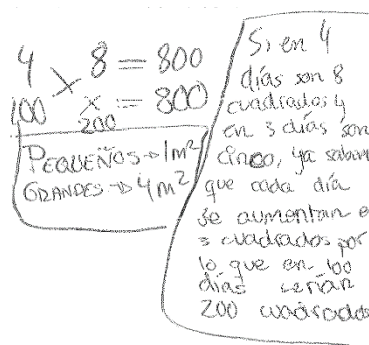 4 8 = 800
100 x = 800
200
PEQUEÑOS → 1m²
GRANDES → 4m²
Si en 4
días son 8
cuadrados y
en 3 días son
cinco, ya sabem
que cada día
se aumentan
3 cuadrados por
lo que en 100
días serían
200 cuadrados